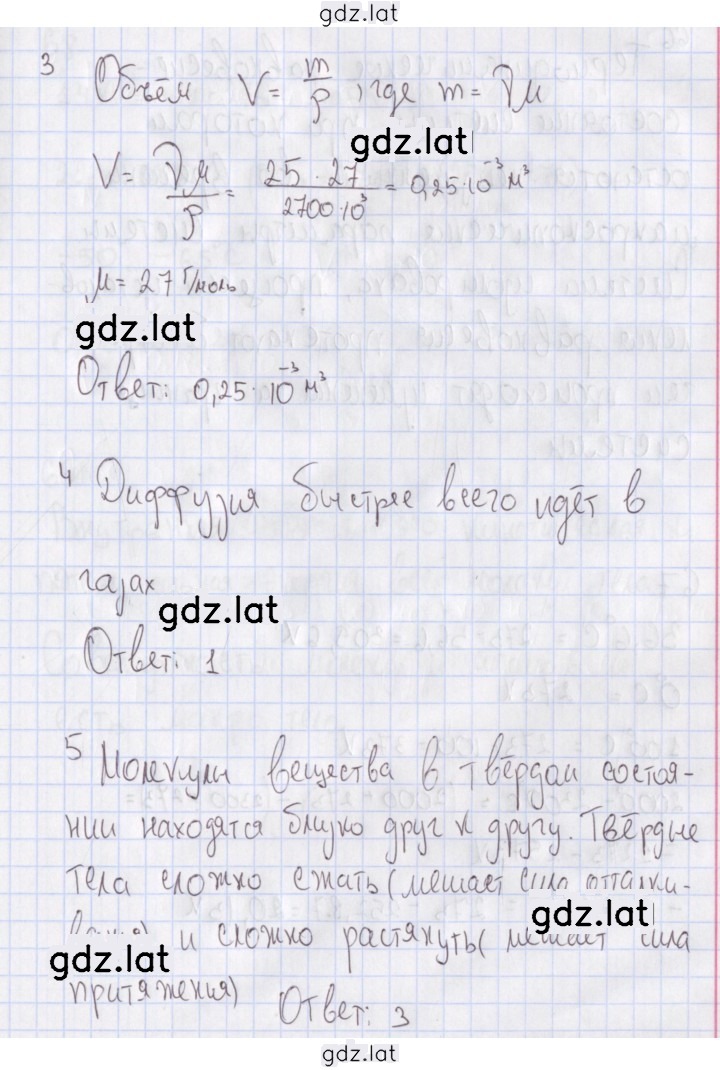 gdz.lat
3 Объём V = m/ρ, где m = νμ
gdz.lat
V = νμ/ρ = 25 · 27/2700·10³ = 0,25·10⁻³ м³
μ = 27 г/моль
gdz.lat
Ответ: 0,25 · 10⁻³ м³
4 Диффузия быстрее всего идёт в
газах
gdz.lat
Ответ: 1
5 Молекулы вещества в твёрдом состоя-
нии находятся близко друг к другу. Твёрдые
тела сложно сжать (мешает сила отталки-
gdz.lat
и сложно растянуть (мешает сила
gdz.lat
притяжения)
Ответ: 3
gdz.lat